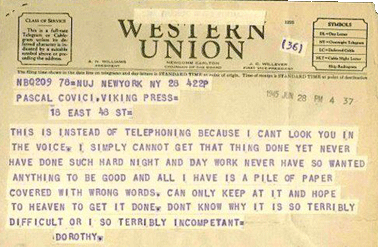 CLASS OF SERVICE
This is a full-rate Telegram or Cablegram unless its deferred character is indicated by a suitable symbol above or preceding the address.
WESTERN UNION
1220
(36)
SYMBOLS
DL=Day Letter
NL=Night Letter
LC=Deferred Cable
NLT=Cable Night Letter
Ship Radiogram
A. N. WILLIAMS
PRESIDENT
NEWCOMB CARLTON
CHAIRMAN OF THE BOARD
J. C. WILLEVER
FIRST VICE-PRESIDENT
NBQ209 78=NUJ NEWYORK NY 28 422P
PASCAL COVICI, VIKING PRESS=
1945 JUN 28 PM 4 37
18 EAST 48 ST=
THIS IS INSTEAD OF TELEPHONING BECAUSE I CANT LOOK YOU IN
THE VOICE. I SIMPLY CANNOT GET THAT THING DONE YET NEVER
HAVE DONE SUCH HARD NIGHT AND DAY WORK NEVER HAVE SO WANTED
ANYTHING TO BE GOOD AND ALL I HAVE IS A PILE OF PAPER
COVERED WITH WRONG WORDS. CAN ONLY KEEP AT IT AND HOPE
TO HEAVEN TO GET IT DONE. DONT KNOW WHY IT IS SO TERRIBLY
DIFFICULT OR I SO TERRIBLY INCOMPETANT=
DOROTHY.